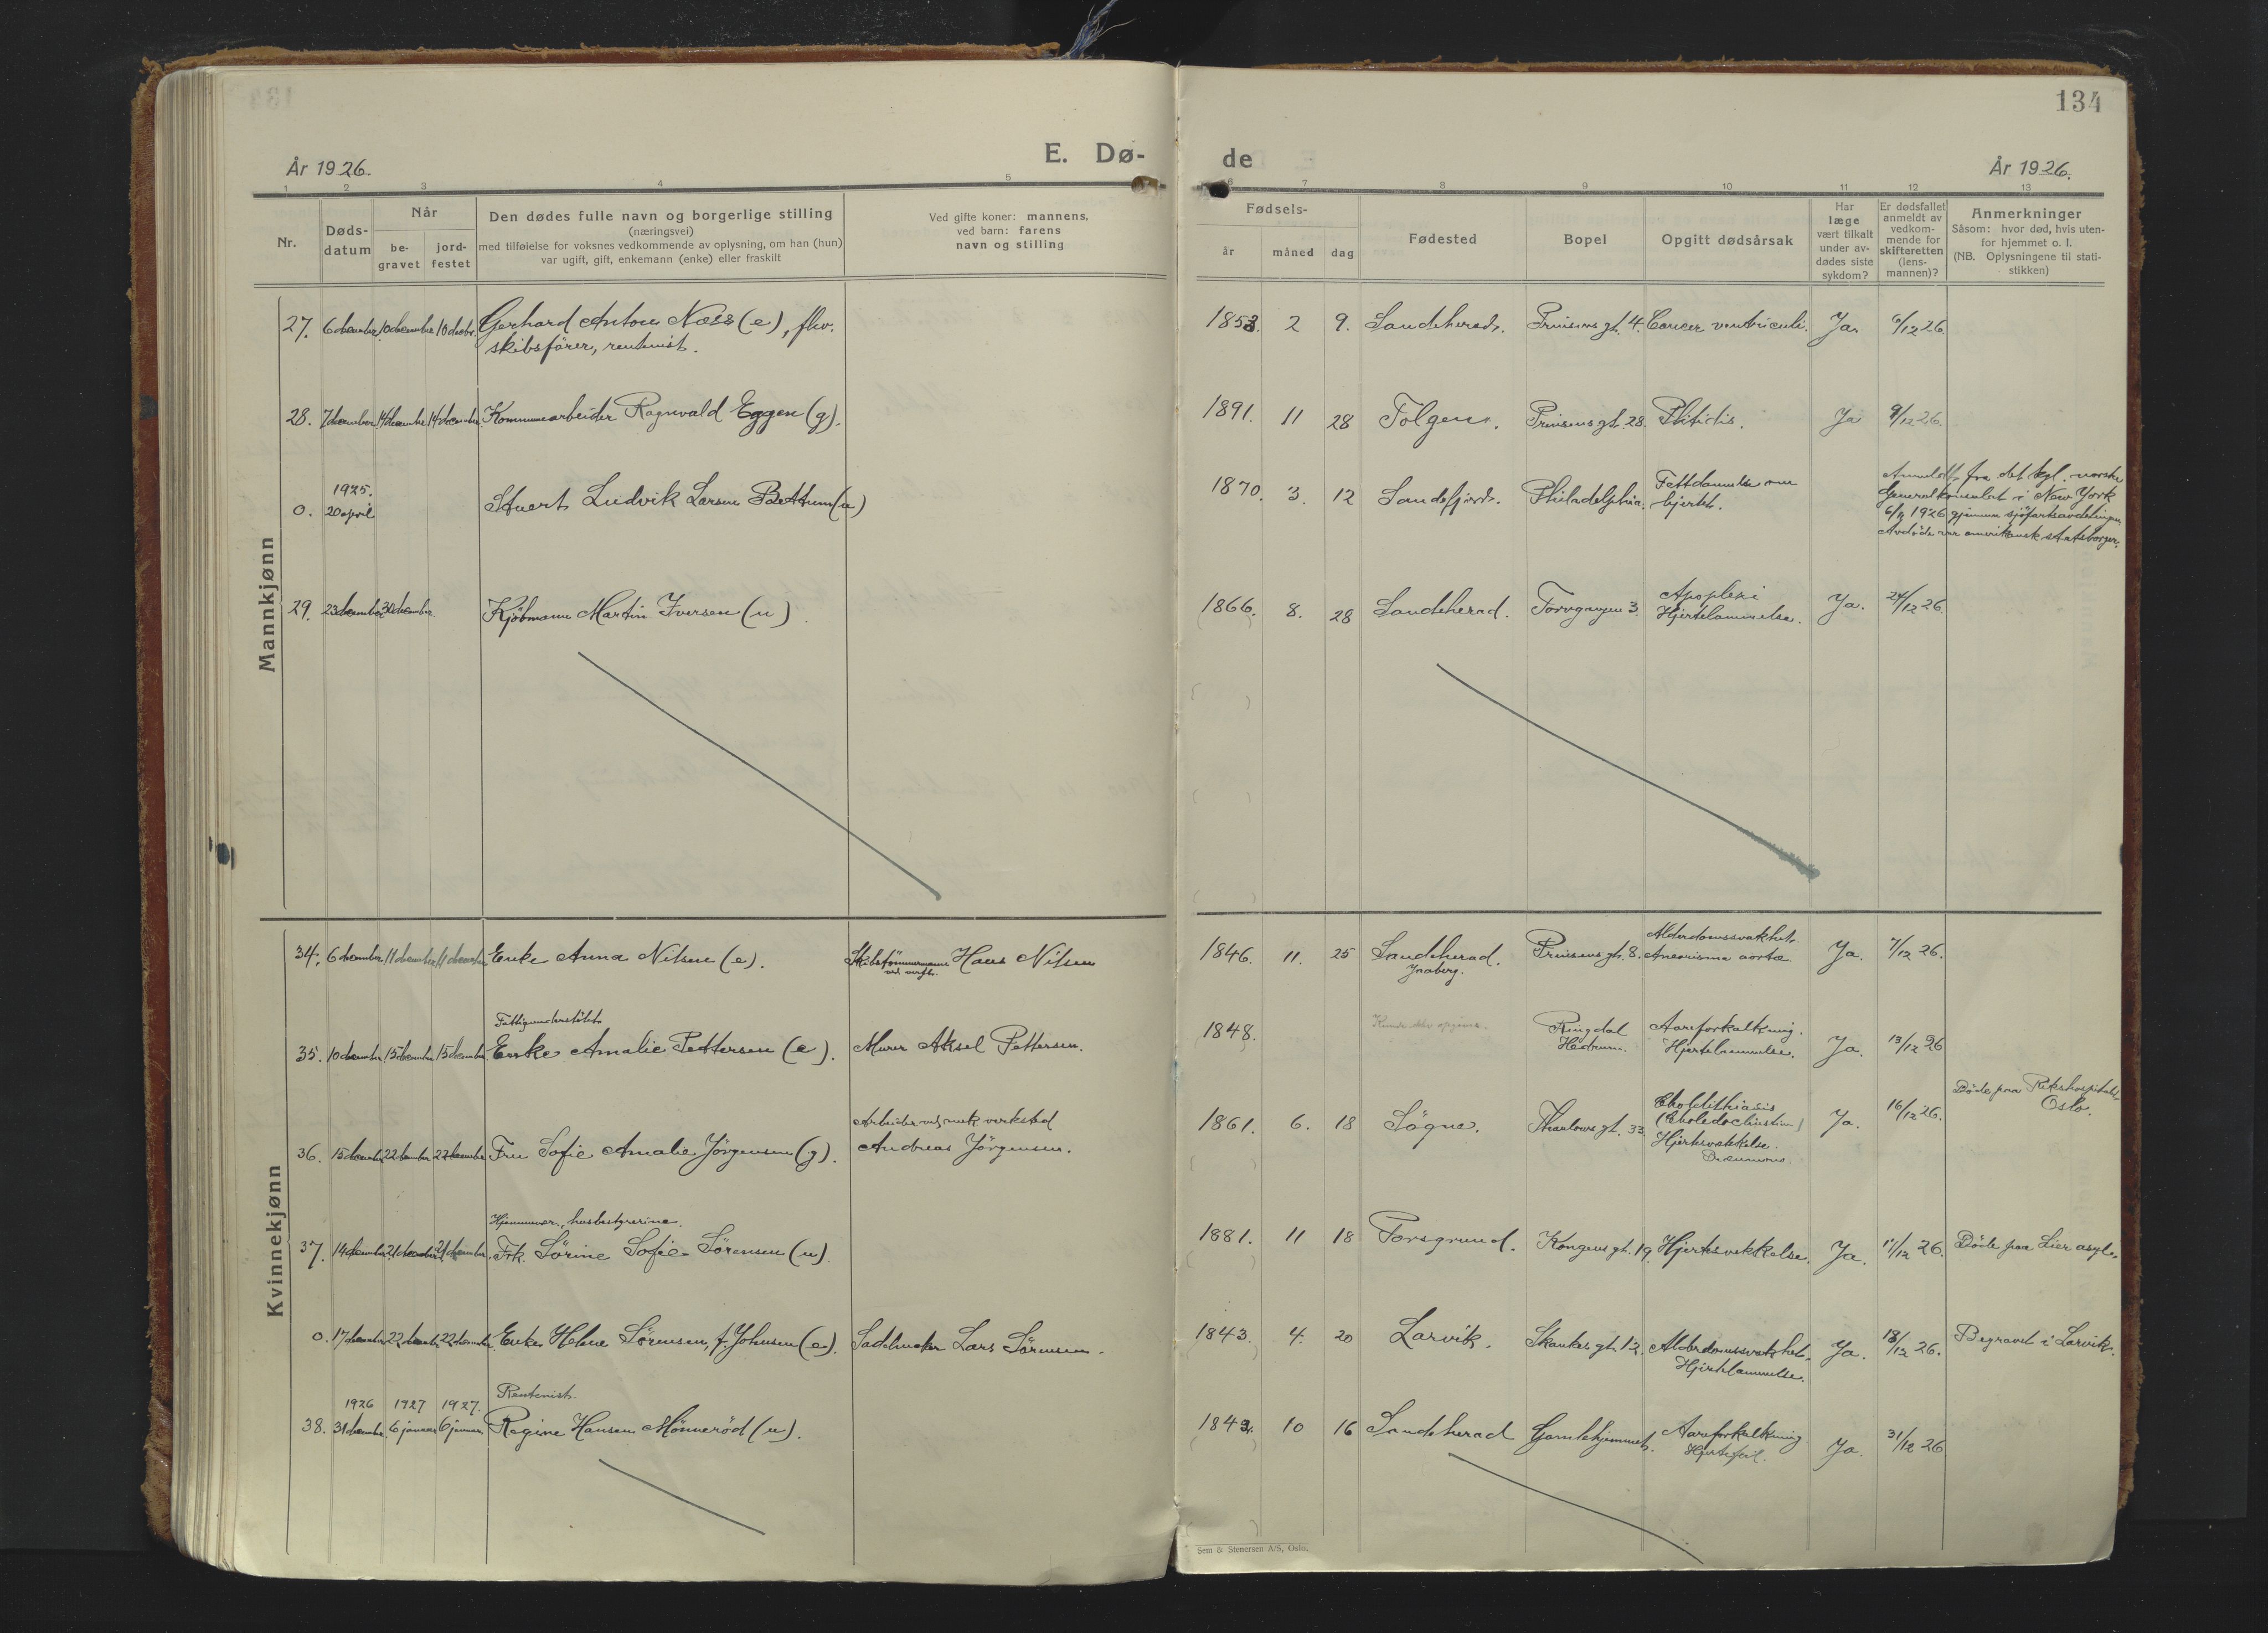 134
E. Dø-
de
År 1926.
År 1926.
1 2 3 4 5 6 7 8 9 10 11 12 13
Nr.
Døds-
datum
Når
be-
gravet
jord-
festet
Den dødes fulle navn og borgerlige stilling
(næringsvei)
med tilføielse for voksnes vedkommende av oplysning, om han (hun)
var ugift, gift, enkemann (enke) eller fraskilt
Ved gifte koner: mannens,
ved barn: farens
navn og stilling
Fødsels-
år måned dag
Fødested
Bopel
Opgitt dødsårsak
Har
læge
vært tilkalt
under av-
dødes siste
sykdom?
Er dødsfallet
anmeldt av
vedkom-
mende for
skifteretten
(lens-
mannen)?
Anmerkninger
Såsom: hvor død, hvis uten-
for hjemmet o. l.
(NB. Oplysningene til stati-
stikken)
Mannkjønn
27. 6 december 10 december 10 decbr. Gerhard Anton Næss (e), fhv. 1853. 2 9. Sandeherad. Prinsens gt. 4. Cancer ventriculi. Ja. 6/12 26.
skibsfører, rentenist.
28. 7 december 14 december 14 december Kommunearbeider Ragnvald Eggen (g). 1891. 11 28 Tolgen. Prinsens gt. 28. Phtisis. Ja 9/12 26.
1925.
0. 20 april Stuert Ludvik Larsen (u) 1870. 3. 12 Sandefjord. Philadelphia. Fettdannelse om
hjertet.
Anmeldt fra det kgl. norske
Generalkonsulat i New York
1926 gjennem sjøfartsavdelingen.
Avdøde var amerikansk statsborger.
29. 23 december 30 december Kjøbmann Martin Iversen (u) 1866. 8. 28 Sandeherad. Torvgangen 3. Apoplexi
Hjertelammelse. Ja. 24/12 26.
Kvinnekjønn
34. 6 december 11 december 11 december Enke Anna Nilsen (e). Skibstømmermann Hans Nilsen 1846. 11. 25 Sandeherad. Prinsens gt. 8. Alderdomssvakhet
Aneurisma aortæ. Ja. 7/12 26.
Fattigunderstøttet
35. 10 december 15 december 15 december Enke Amalie Pettersen (e). Murer Aksel Pettersen. 1848. Ringdal
Hedrum. Aareforkalkning.
Hjertelammelse. Ja. 13/12 26
36. 15 december 22 december 22 december Fru Sofie Amalie Jørgensen (g). Arbeider ved mek verksted
Andreas Jørgensen. 1861. 6. 18 Søgne. Thaulows gt. 33. Cholelithiasis
Hjertesvekkelse. Ja. 16/12 26. Døde paa Rikshospitalet
Oslo.
husbestyrerine.
37. 14 december 21 december 21 december Frk. Sørine Sofie Sørensen (u) 1881. 11 18 Porsgrund. Kongens gt. 19. Hjertesvekkelse. Ja. 17/12 26. Døde paa Lier asyl.
0. 17 december 22 december 22 december Enke Helene Sørensen, f. Johnsen (e). Sadelmaker Lars Sørensen. 1843. 4. 20 Larvik. Skankes gt. 12. Alderdomssvakhet.
Hjertelammelse. Ja. 18/12 26. Begravet i Larvik.
1926 1927 1927. Rentenist
38. 31 december 6 januar 6 januar Regine Hansen Mønnerød (u). 10 16 Sandeherad Gamlehjemmet. Aareforkalkning
Hjertefeil. Ja. 31/12 26
Sem & Stenersen A/S, Oslo.